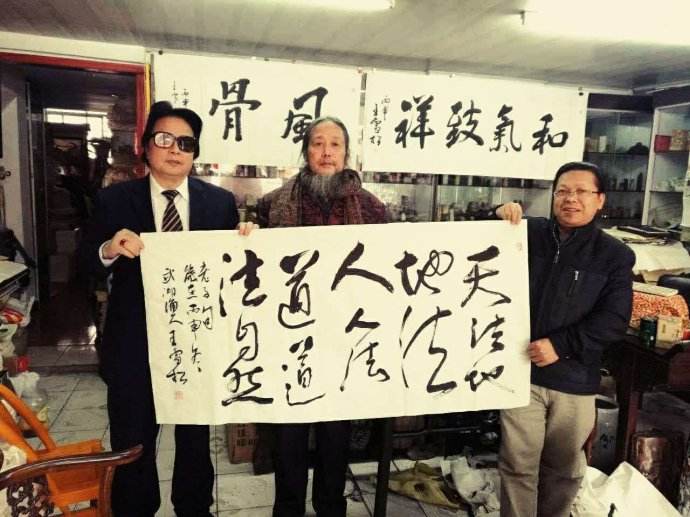 和氣致祥
丙申
王雪松
風骨
丙申
天法地
地法
人人法
道道
法自然
老子句
歲在丙申冬
武湖漁人王雪松